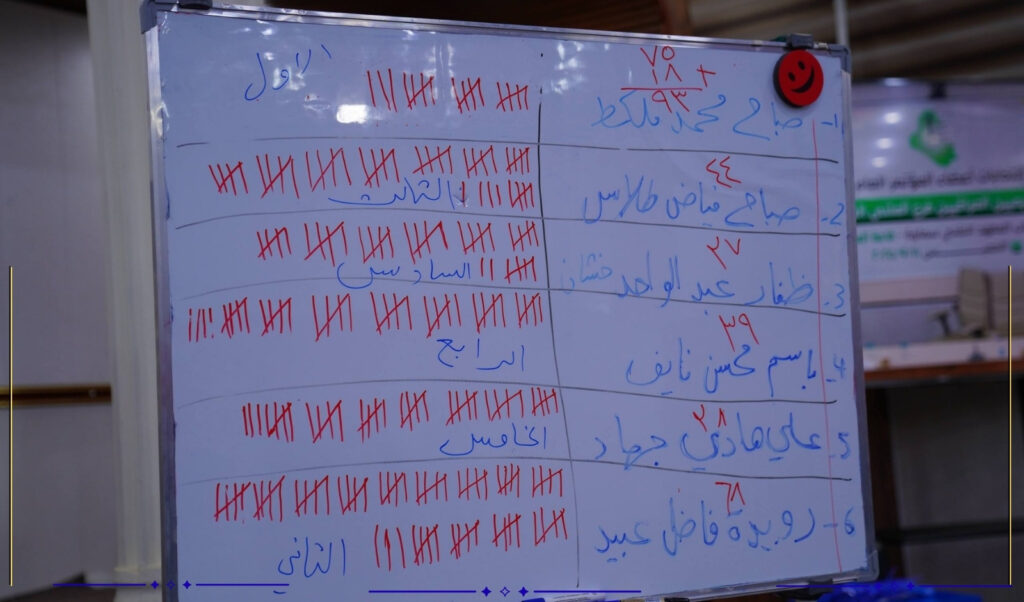 ٧٥
١٨ +
٩٣
1- صباح محمد ملكط
الاول
٤٤
2- صباح فياض طلاس
الثالث
٢٧
3- ظفار عبد الواحد خشان
السادس
٣٩
4- باسم محسن نايف
الرابع
٢٨
5- علي هادي جهاد
الخامس
٦٨
6- رويدة فاضل عبيد
الثاني